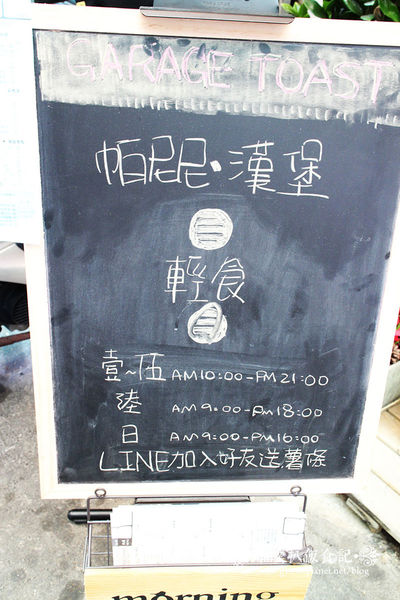 GARAGE TOAST
帕尼尼·漢堡
輕食
壹~伍 AM10:00-PM21:00
陸 AM9:00-PM18:00
日 AM9:00-PM16:00
LINE加入好友送薯條
morning